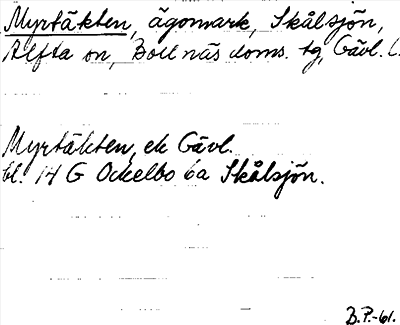 Myrtäkten, ägomark, Skålsjön,
Alfta sn, Bollnäs doms. tg, Gävl. l.
Myrtäkten, ek Gävl.
bl. 14 G Ockelbo 6a Skålsjön.
B.P.-61.